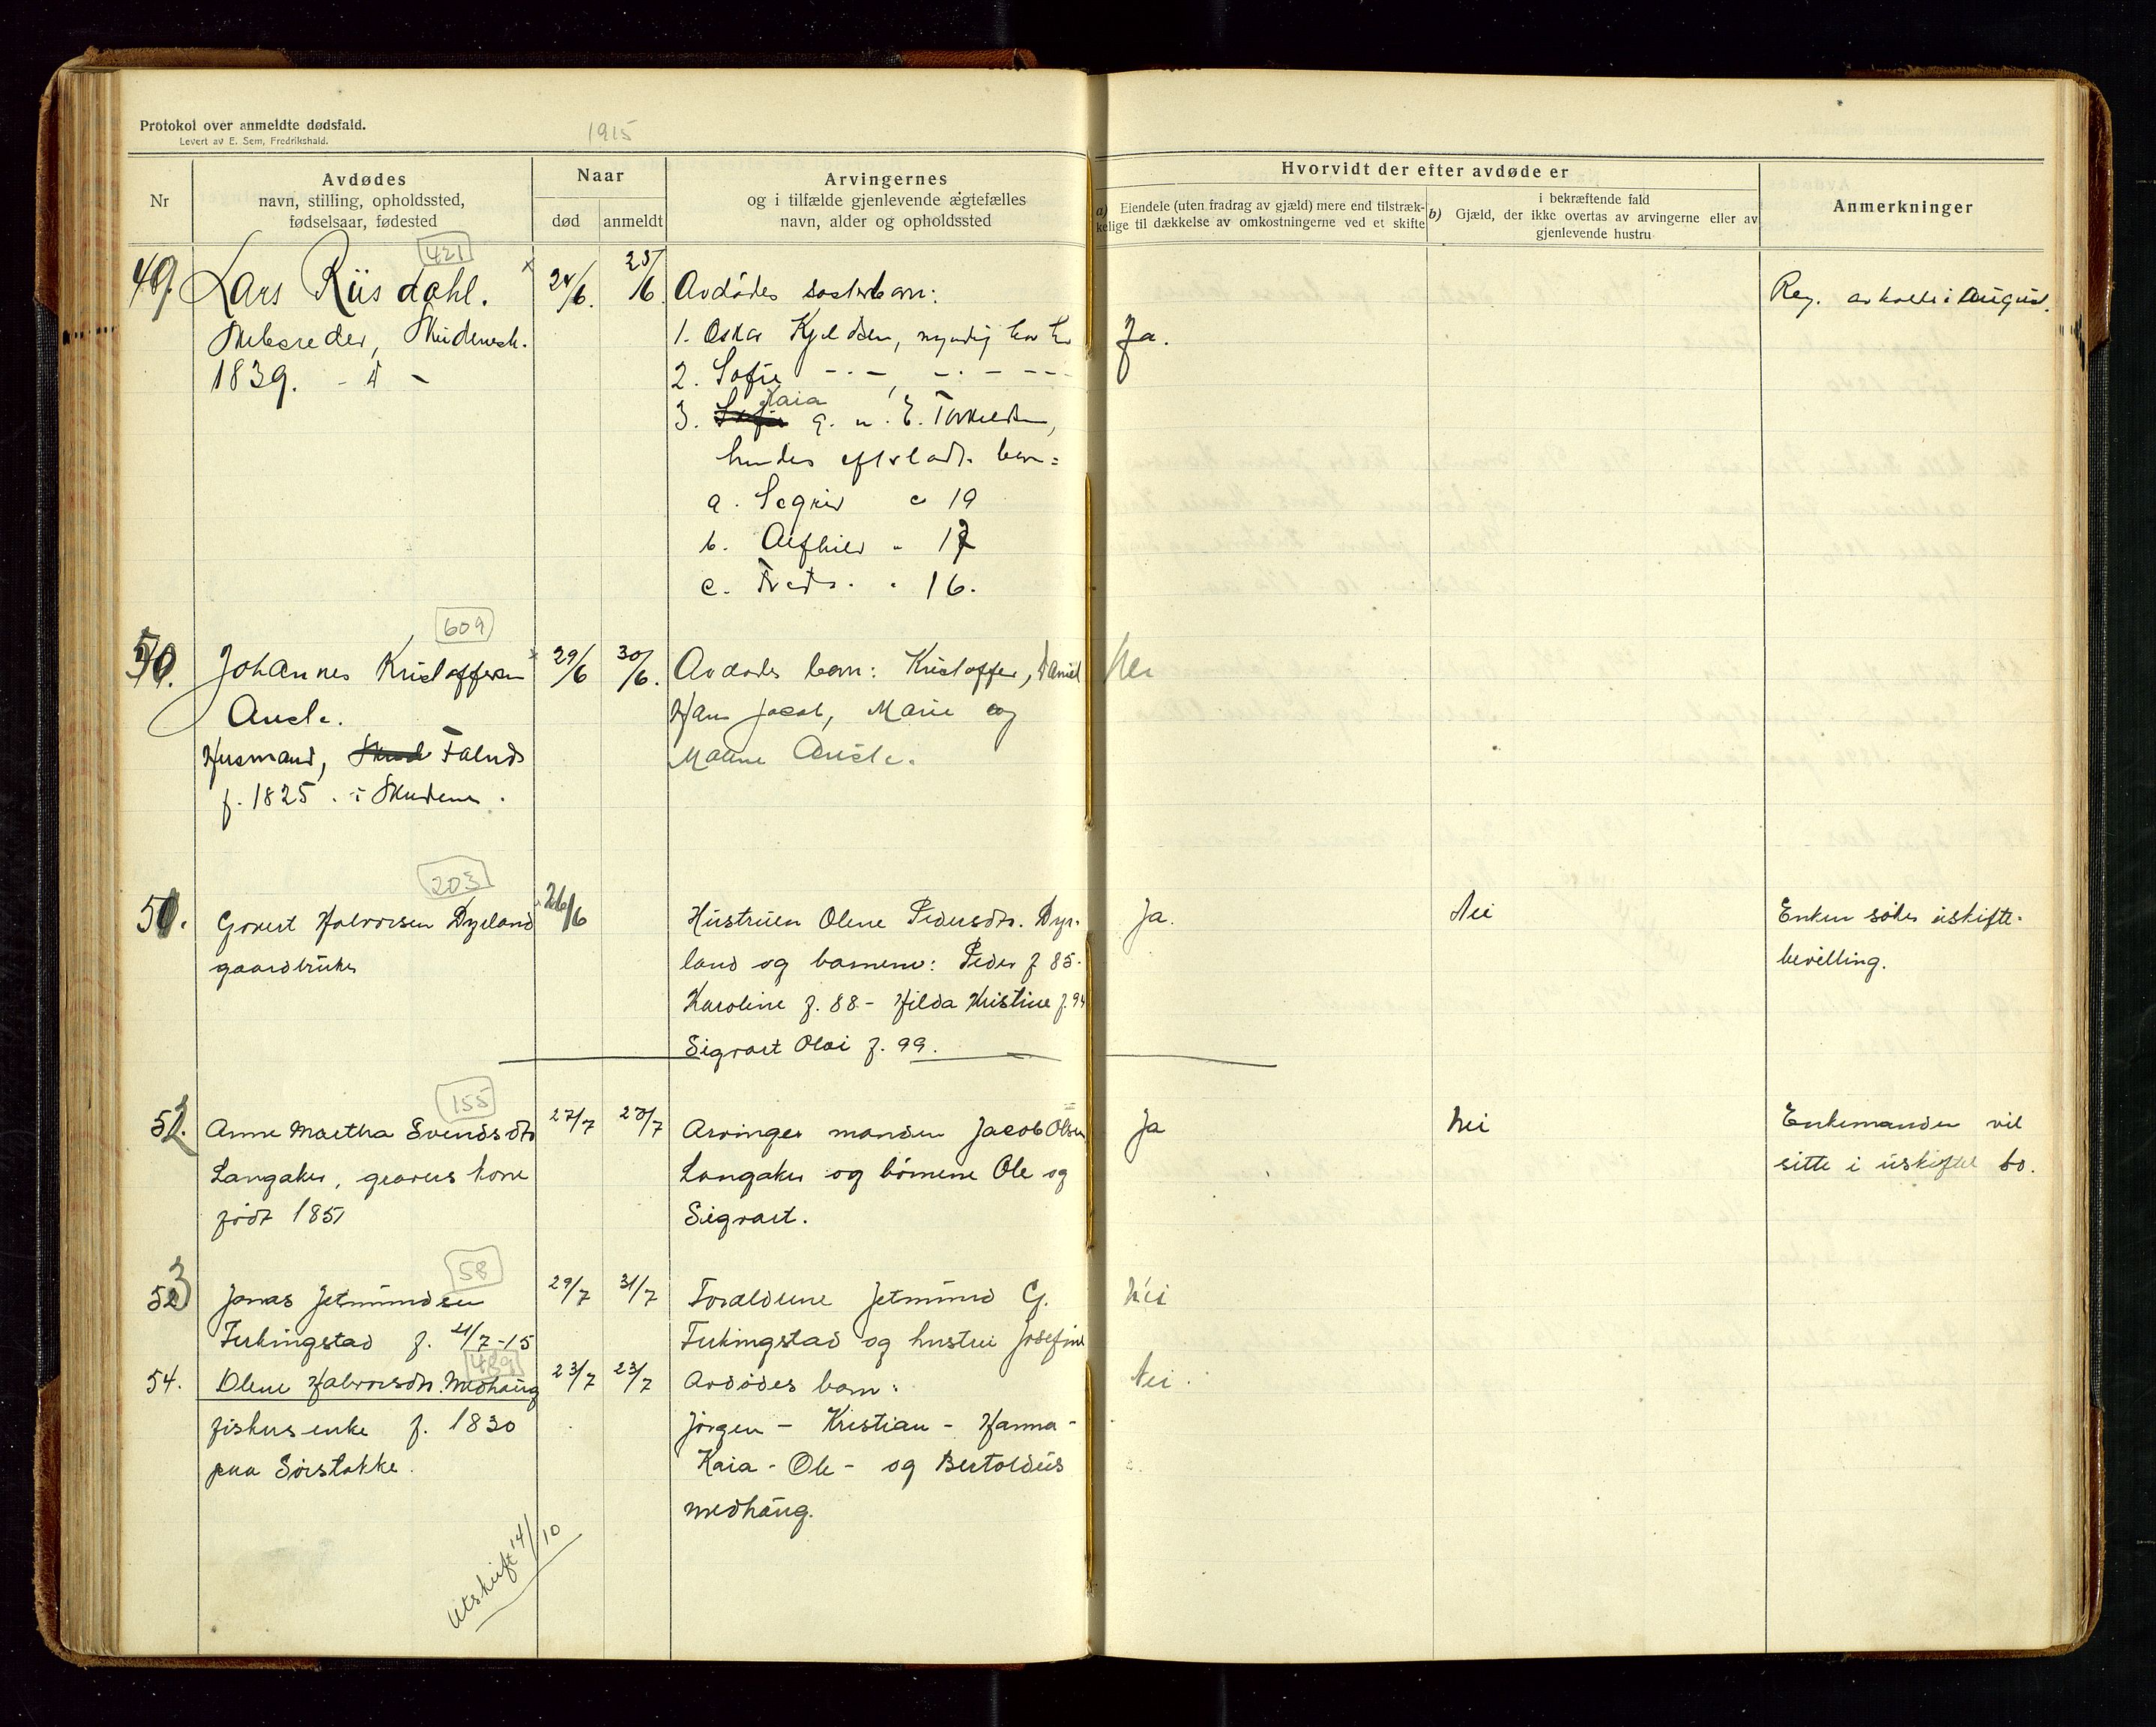 Protokol over anmeldte dødsfald.
Levert av E. Sem, Fredrikshald.
1915
Nr
Avdødes
navn, stilling, opholdssted,
fødselsaar, fødested
Naar
død
anmeldt
Arvingernes
og i tilfælde gjenlevende ægtefælles
navn, alder og opholdssted
Hvorvidt der efter avdøde er
a) Eiendele (uten fradrag av gjæld) mere end tilstræk-
kelige til dækkelse av omkostningerne ved et skifte
i bekræftende fald
b) Gjæld, der ikke overtas av arvingerne eller av
gjenlevende hustru
Anmerkninger
421
49. Lars Riisdahl. 24/6. 25/6. Avdødes søsterbarn: Reg. avholdt i August.
Skibsreder, Skudenesh. 1. Oskar Kjeldsen, myndig Ja.
1839. - " - 2. Sofie - " -, - " -
3. Kaia g. m. E. Torkelsen,
hendes efterladte barn:
a. Sigrid c 19
b. Alfhild " 17
c. " 16.
609
50. Johannes Kristoffersen 29/6 30/6. Avdødes barn: Kristoffer, Daniel Nei
Austb. Hans Jacob, Marie og
Husmand, Falnes Malene
f. 1825. i Skudenes.
203
51. Govert Halvorsen Dyrland 26/6 Hustruen Olene Pedersdtr. Dyr- Ja. Nei Enken søker uskifte-
gaardbruker land og barnene: Peder f 85. bevilling.
Karoline f. 88 - Hilda Kristine f. 94
Sigvart Olai f. 99.
155
52. Anne Martha Svendsdtr 27/7 28/7 Arvinger manden Jacob Olsen Ja Nei Enkemanden vil
Langaker, gravers kone Langaker og børnene Ole og sitte i uskiftet bo.
født 1851 Sigvart.
58
53 Jonas Jetmundsen 29/7 31/7 Forældrene Jetmund G. Nei
Ferkingstad f. 21/7-15 Ferkingstad og hustru Josefine
489
54. Olene Halvorsdtr. Medhaug 23/7 23/7 Avdødes barn: Nei.
fiskers enke f. 1830 Jørgen - Kristian - Hanna -
paa Sørstokke. Kaia - Ole - og Bertoldus
Medhaug.
Utskrift 14/10